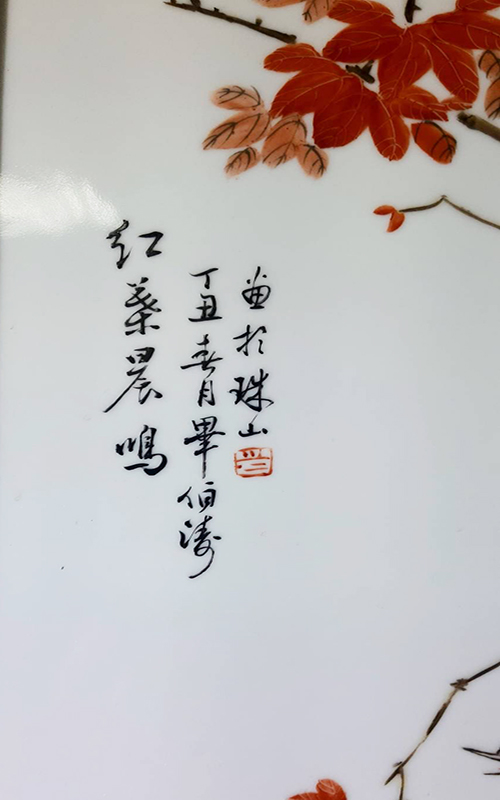 红葉晨鳴
丁丑春月畢伯涛
画於珠山